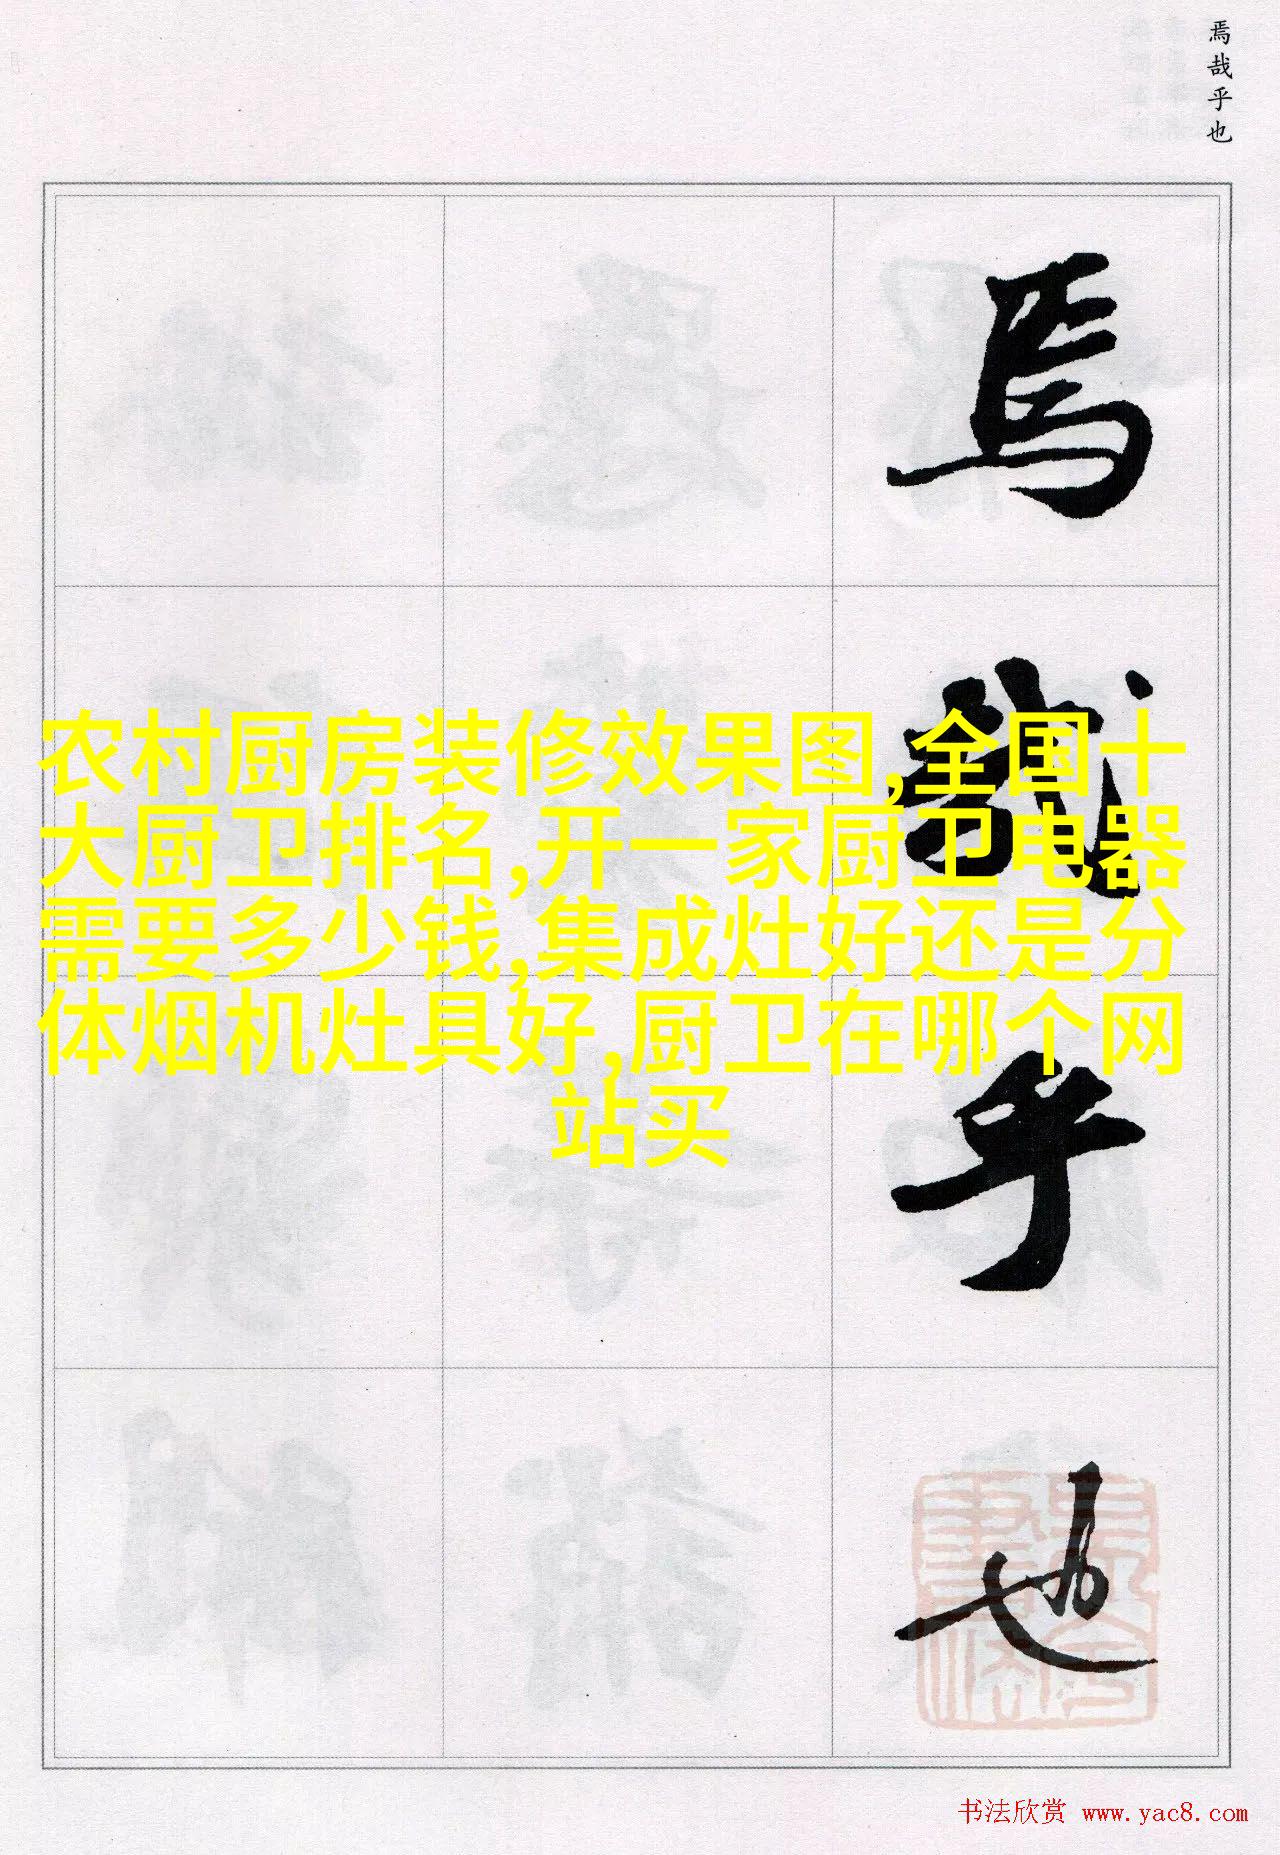 焉哉乎也
焉
哉
乎
也
农村厨房装修效果图,全国十
大厨卫排名,开一家厨卫电器
需要多少钱,集成灶好还是分
体烟机灶具好,厨卫在哪个网
站买
书法欣赏 www.yac8.com